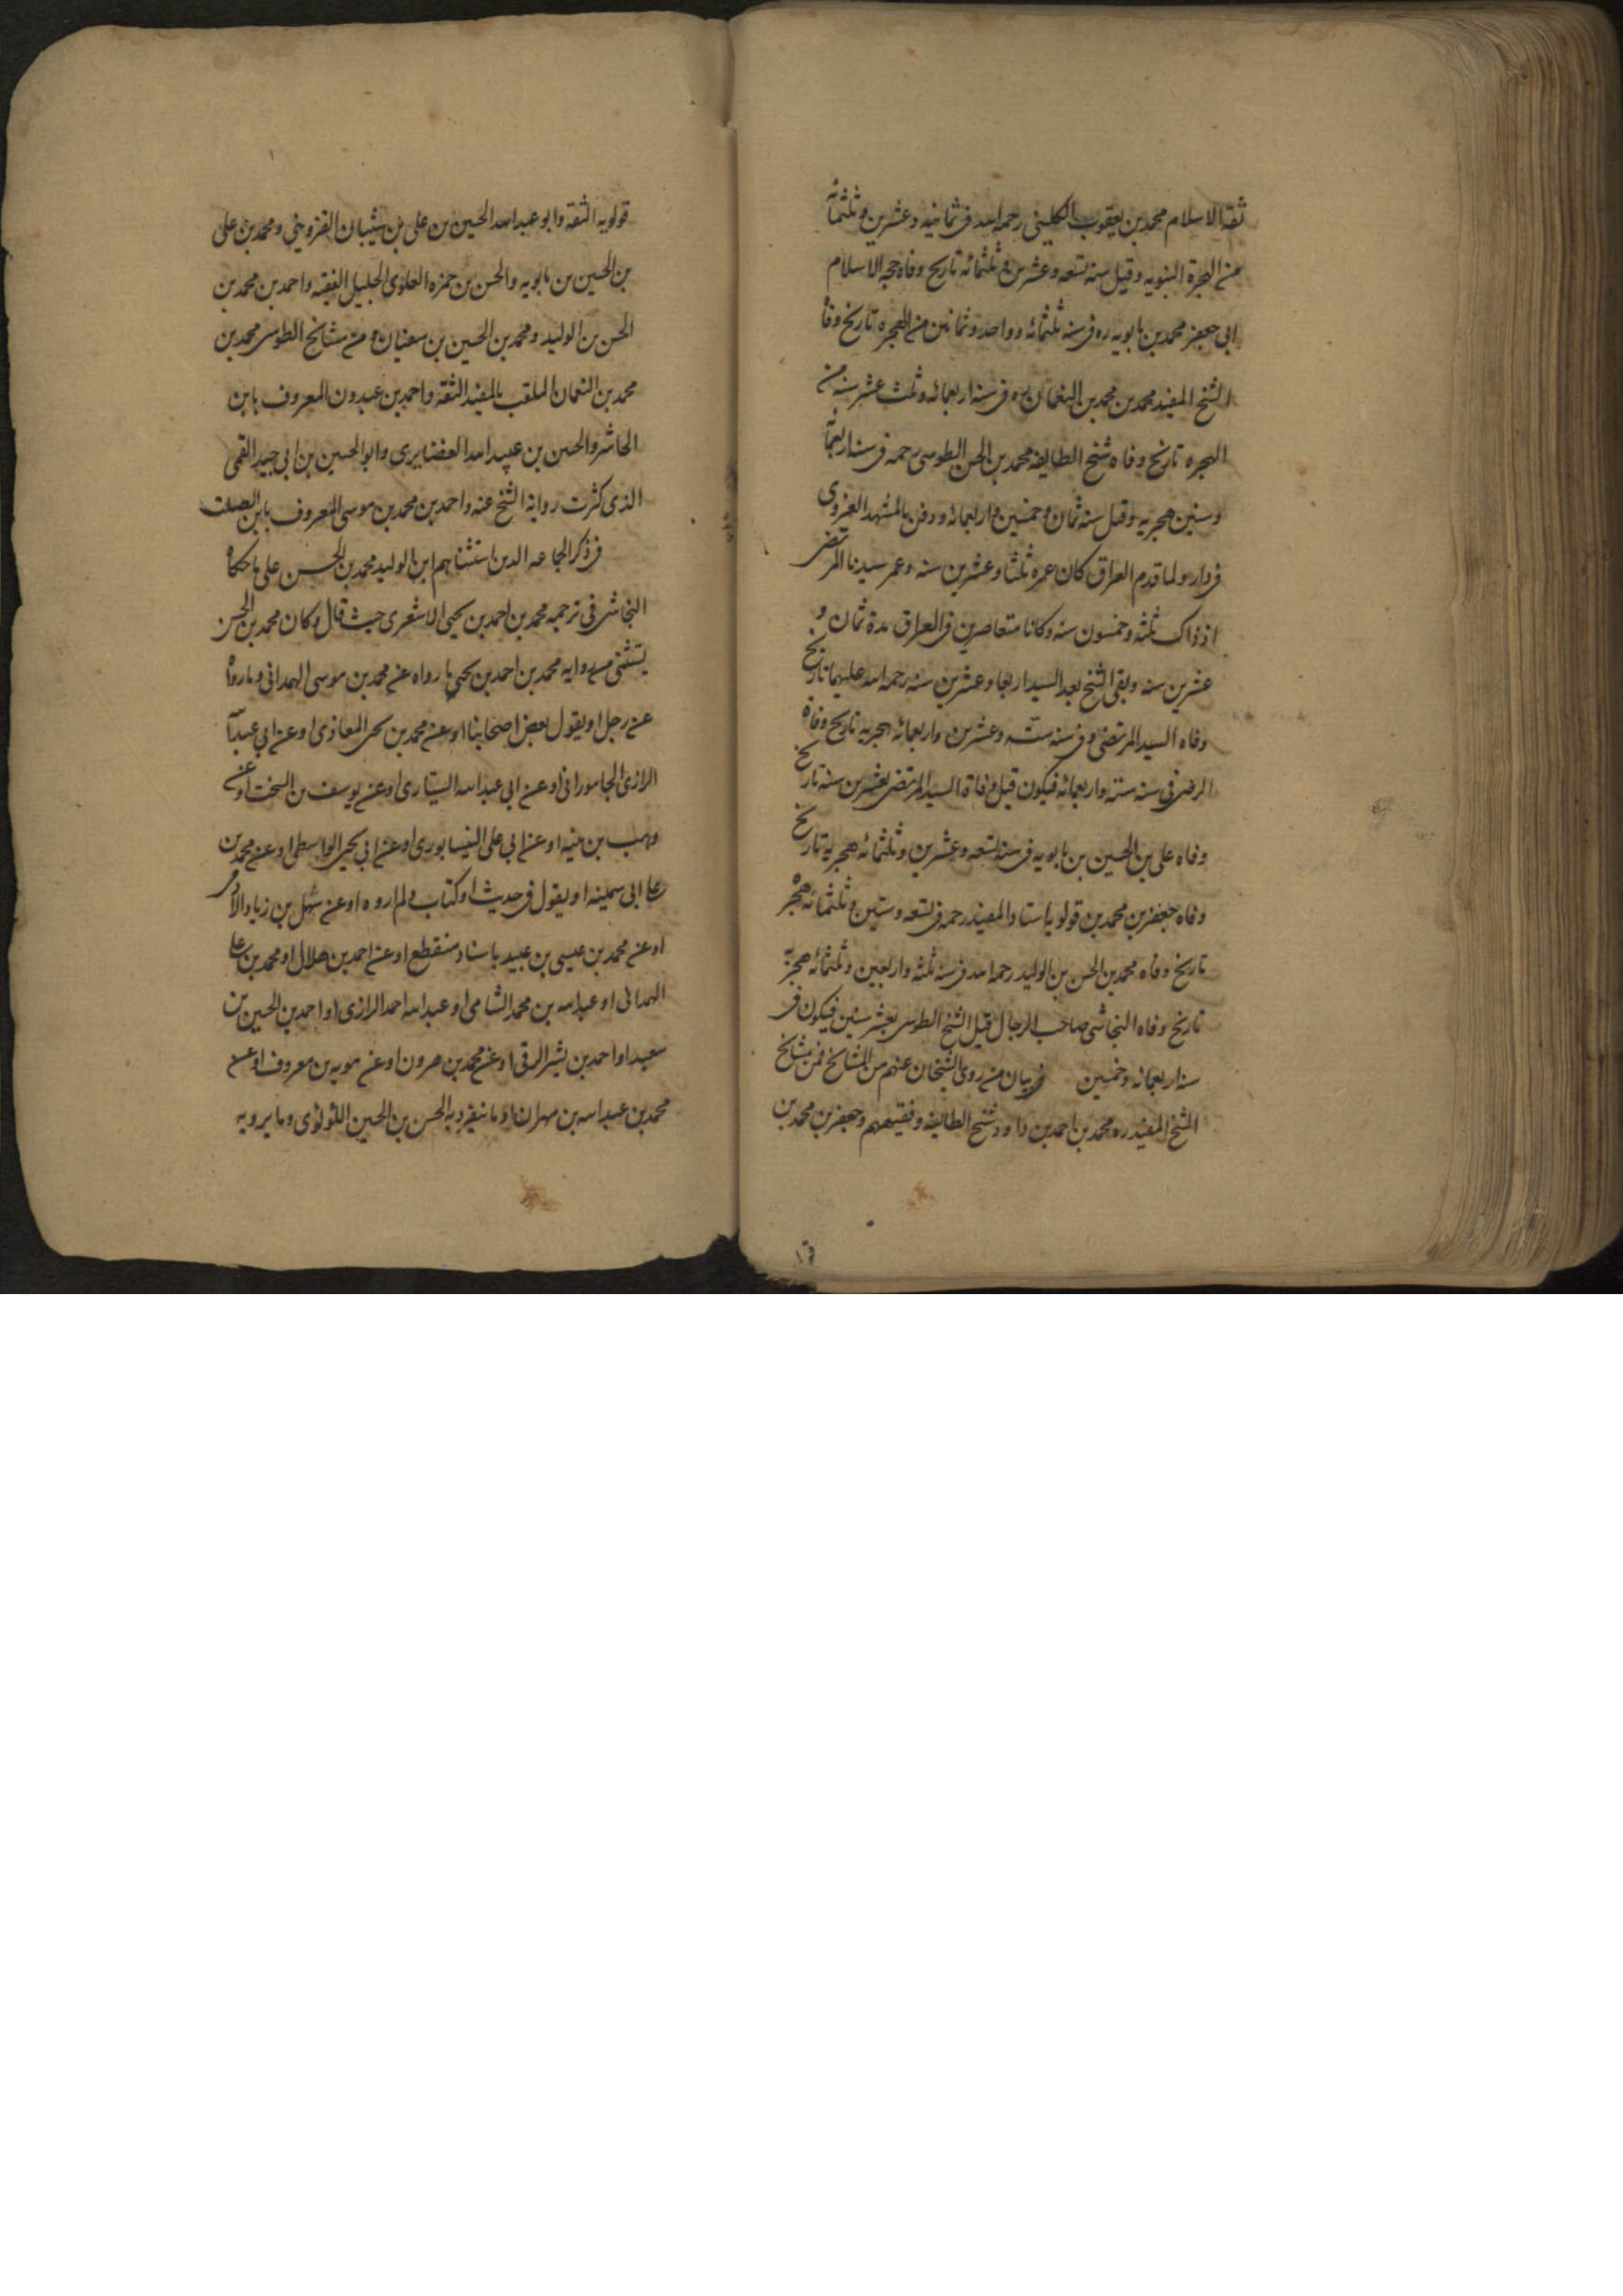 ثقة الاسلام محمد بن يعقوب الكليني رحمه الله في ثمانيه وعشرين وثلثمائه
من الهجرة النبويه وقيل سنه تسعه وعشرين و ثلثمائه تاريخ وفاه حجه الاسلام
ابي جعفر محمد بن بابويه ره في سنه ثلثمائه وواحد وثمانين من الهجره تاريخ وفاه
الشيخ المفيد محمد بن محمد بن النعمان ره في سنه اربعمائه وثلث عشر سنه من
الهجره تاريخ وفاه شيخ الطايفه محمد بن الحسن الطوسي رحمه في سنه اربعمائه
وستين هجريه وقيل سنه ثمان وخمسين واربعمائه ودفن بالمشهد الغروي
في داره ولما قدم العراق كان عمره ثلثا وعشرين سنه وعمر سيدنا المرتضى
اذ ذاك ثلثه وخمسون سنه وكانا متعاصرين في العراق مدة ثمان و
عشرين سنه وبقي الشيخ بعد السيد اربعا وعشرين سنه رحمه الله عليهما تاريخ
وفاه السيد المرتضى في سنه سته وعشرين واربعمائه هجريه تاريخ وفاة
الرضي في سنه سته واربعمائه فيكون قبل وفاة السيد المرتضى بعشرين سنه تاريخ
وفاه علي بن الحسين بن بابويه في سنه تسعه وعشرين وثلثمائه هجريه تاريخ
وفاه جعفر بن محمد بن قولويه استاد المفيد رحمه في تسعه وستين وثلثمائه هجريه
تاريخ وفاه محمد بن الحسن بن الوليد رحمه الله في سنه ثلثه واربعين وثلثمائه هجرية
تاريخ وفاه النجاشي صاحب الرجال قبل الشيخ الطوسي بعشر سنين فيكون في
سنه اربعمائه وخمسين في بيان من روى الشيخان عنهم من المشايخ فمن مشايخ
الشيخ المفيد ره محمد بن احمد بن داود شيخ الطايفه وفقيههم وجعفر بن محمد بن
قولويه الثقه وابو عبد الله الحسين بن علي بن شيبان القزويني ومحمد بن علي
بن الحسين بن بابويه والحسن بن حمزه العلوي الجليل الفقيه واحمد بن محمد بن
الحسن بن الوليد ومحمد بن الحسين بن سفيان ومن مشايخ الطوسي محمد بن
محمد بن النعمان الملقب بالمفيد الثقه واحمد بن عبدون المعروف بابن
الحاشر والحسين بن عبيد الله الغضايري وابو الحسين بن ابي جيد القمي
الذي كثرت رواية الشيخ عنه واحمد بن محمد بن موسى المعروف بابن الصلت
في ذكر الجماعه الذين استثناهم ابن الوليد محمد بن الحسن على ما حكاه
النجاشي في ترجمه محمد بن احمد بن يحيى الاشعري حيث قال وكان محمد بن الحسن
يستثنى من روايه محمد بن احمد بن يحيى ما رواه عن محمد بن موسى الهمداني وما رواه
عن رجل او يقول بعض اصحابنا او عن محمد بن يحيى المعاذي او عن ابي عبد الله
الرازي الجاموراني او عن ابي عبد الله السياري او عن يوسف بن السخت او عن
وهب بن منبه او عن ابي علي النيسابوري او عن ابي يحيى الواسطي او عن محمد بن
علي ابي سمينه او يقول في حديث او كتاب ولم اروه او عن سهل بن زياد الادمي
او عن محمد بن عيسى بن عبيد باسناد منقطع او عن احمد بن هلال او محمد بن علي
الهمداني او عبد الله بن محمد الشامي او عبد الله احمد الرازي او احمد بن الحسين بن
سعيد او احمد بن بشير الرقي او عن محمد بن هرون او عن مويه بن معروف او عن
محمد بن عبد الله بن مهران او ما ينفرد به الحسن بن الحسين اللؤلؤي وما يرويه